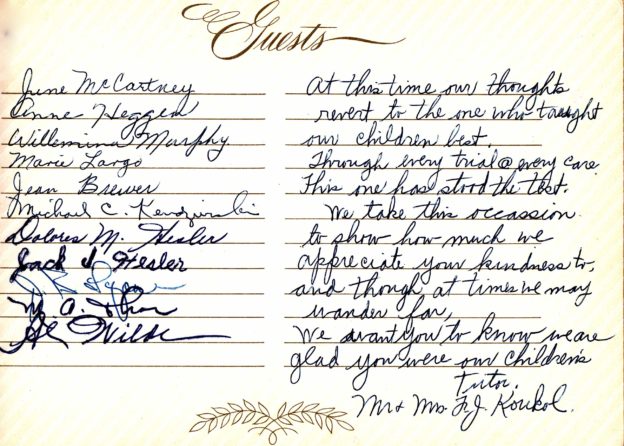 Guests
June McCartney
Anne Heggen
Willemina Murphy
Marie Largo
Jean Brewer
Michael C.
Dolores M. Hesler
Jack J. Hesler
M. A.
At this time our thoughts
revert to the one who taught
our children best.
Through every trial @ every care
This one has stood the test.
We take this occassion
to show how much we
appreciate your kindness to,
and though at times we may
wander far,
We want you to know we are
glad you were our children's
Tutor.
Mr & Mrs. Fr. J. Koukol.